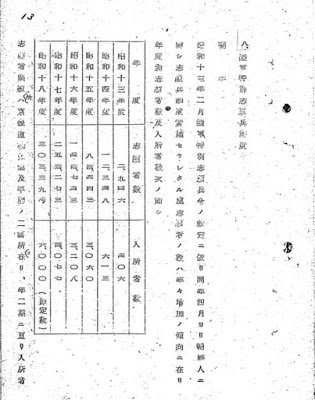 八、陸軍特別志願兵制度
昭和十三年二月陸軍特別志願兵令ノ制定ニ依リ同年四月ヨリ朝鮮人ニ
對シ志願兵制度實施セラレタル處志願者ノ數ハ年々增加ノ傾向ニ在リ
年度別志願者數及入所者數次ノ如シ
年 度 志願者數 入所者數
昭和十三年度 二、九四六 四〇六
昭和十四年度 一二、三四八 六一三
昭和十五年度 八四、四四三 三、〇六〇
昭和十六年度 三、二〇八
昭和十七年度 二五四、二七三 四、〇七七
昭和十八年度 三〇三、三九四 六、〇〇〇(豫定數)
志願者訓練所ハ京畿道 及平壤ノ二箇所在リ、年二期ニ亘リ入所者
13